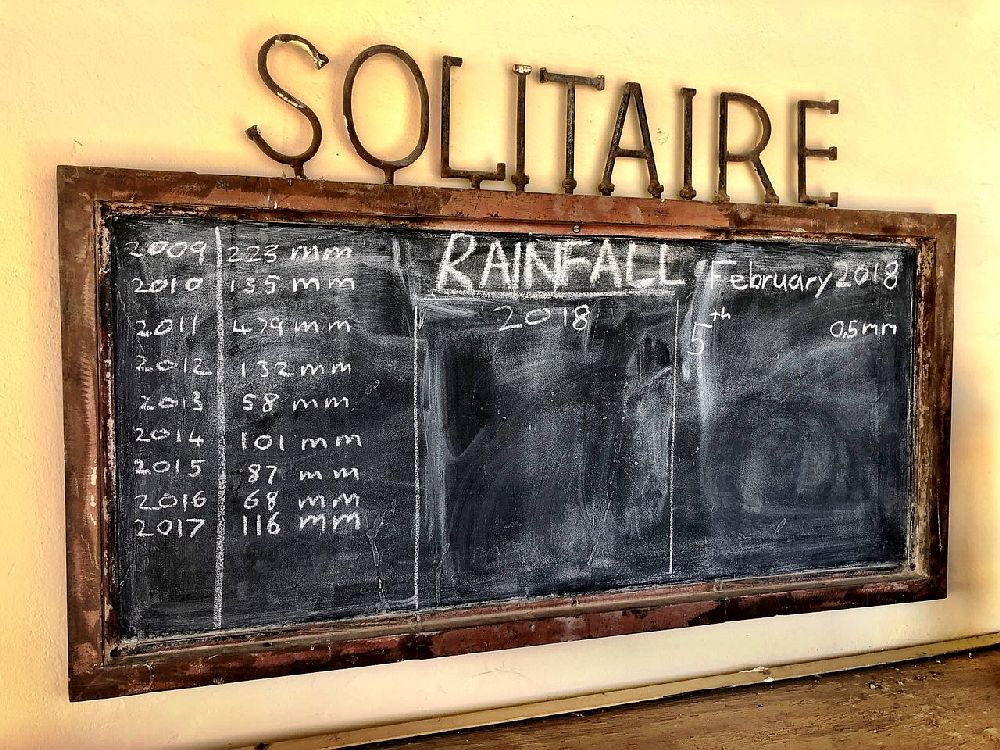 SOLITAIRE
RAINFALL
2009 223 mm
2010 135 mm
2011 479 mm
2012 132 mm
2013 58 mm
2014 101 mm
2015 87 mm
2016 68 mm
2017 116 mm
2018
February 2018
5th 0,5mm